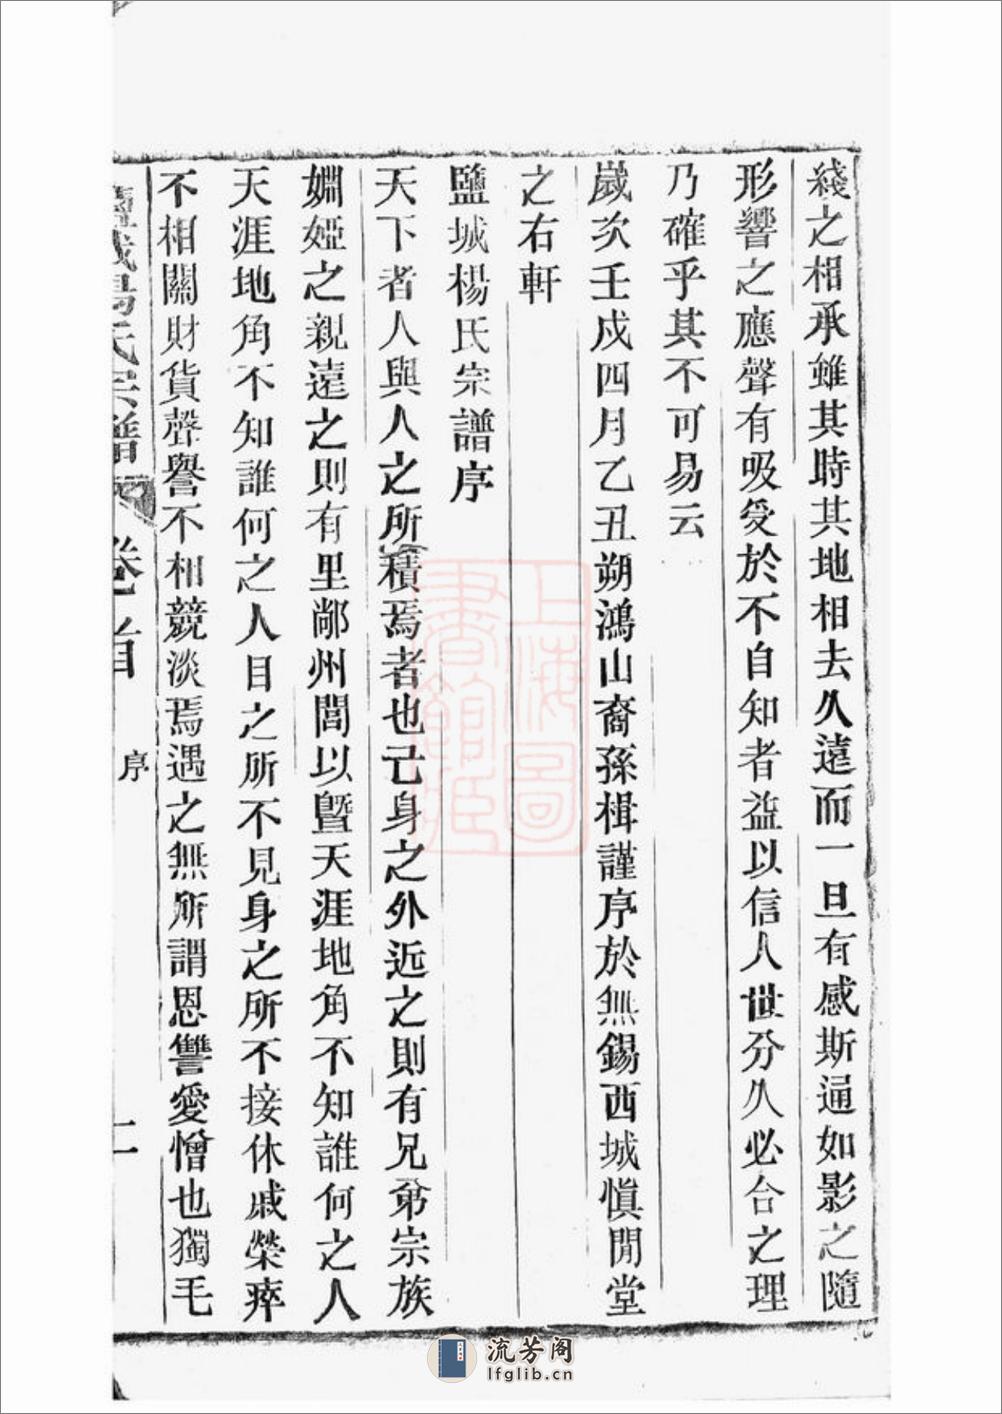 綫之相承雖其時其地相去久遠而一旦有感斯通如影之隨
形響之應聲有吸受於不自知者益以信人世分久必合之理
乃確乎其不可易云
歲次壬戌四月乙丑朔鴻山裔孫楫謹序於無錫西城愼閒堂
之右軒
鹽城楊氏宗譜序
天下者人與人之所積焉者也己身之外近之則有兄弟宗族
婣婭之親遠之則有里鄰州閭以曁天涯地角不知誰何之人
天涯地角不知誰何之人目之所不見身之所不接休戚榮瘁
不相關財貨聲譽不相競淡焉遇之無所謂恩讐愛憎也獨毛
鹽城楊氏宗譜 卷首 序 二
上海圖書館藏
流芳阁
lfglib.cn